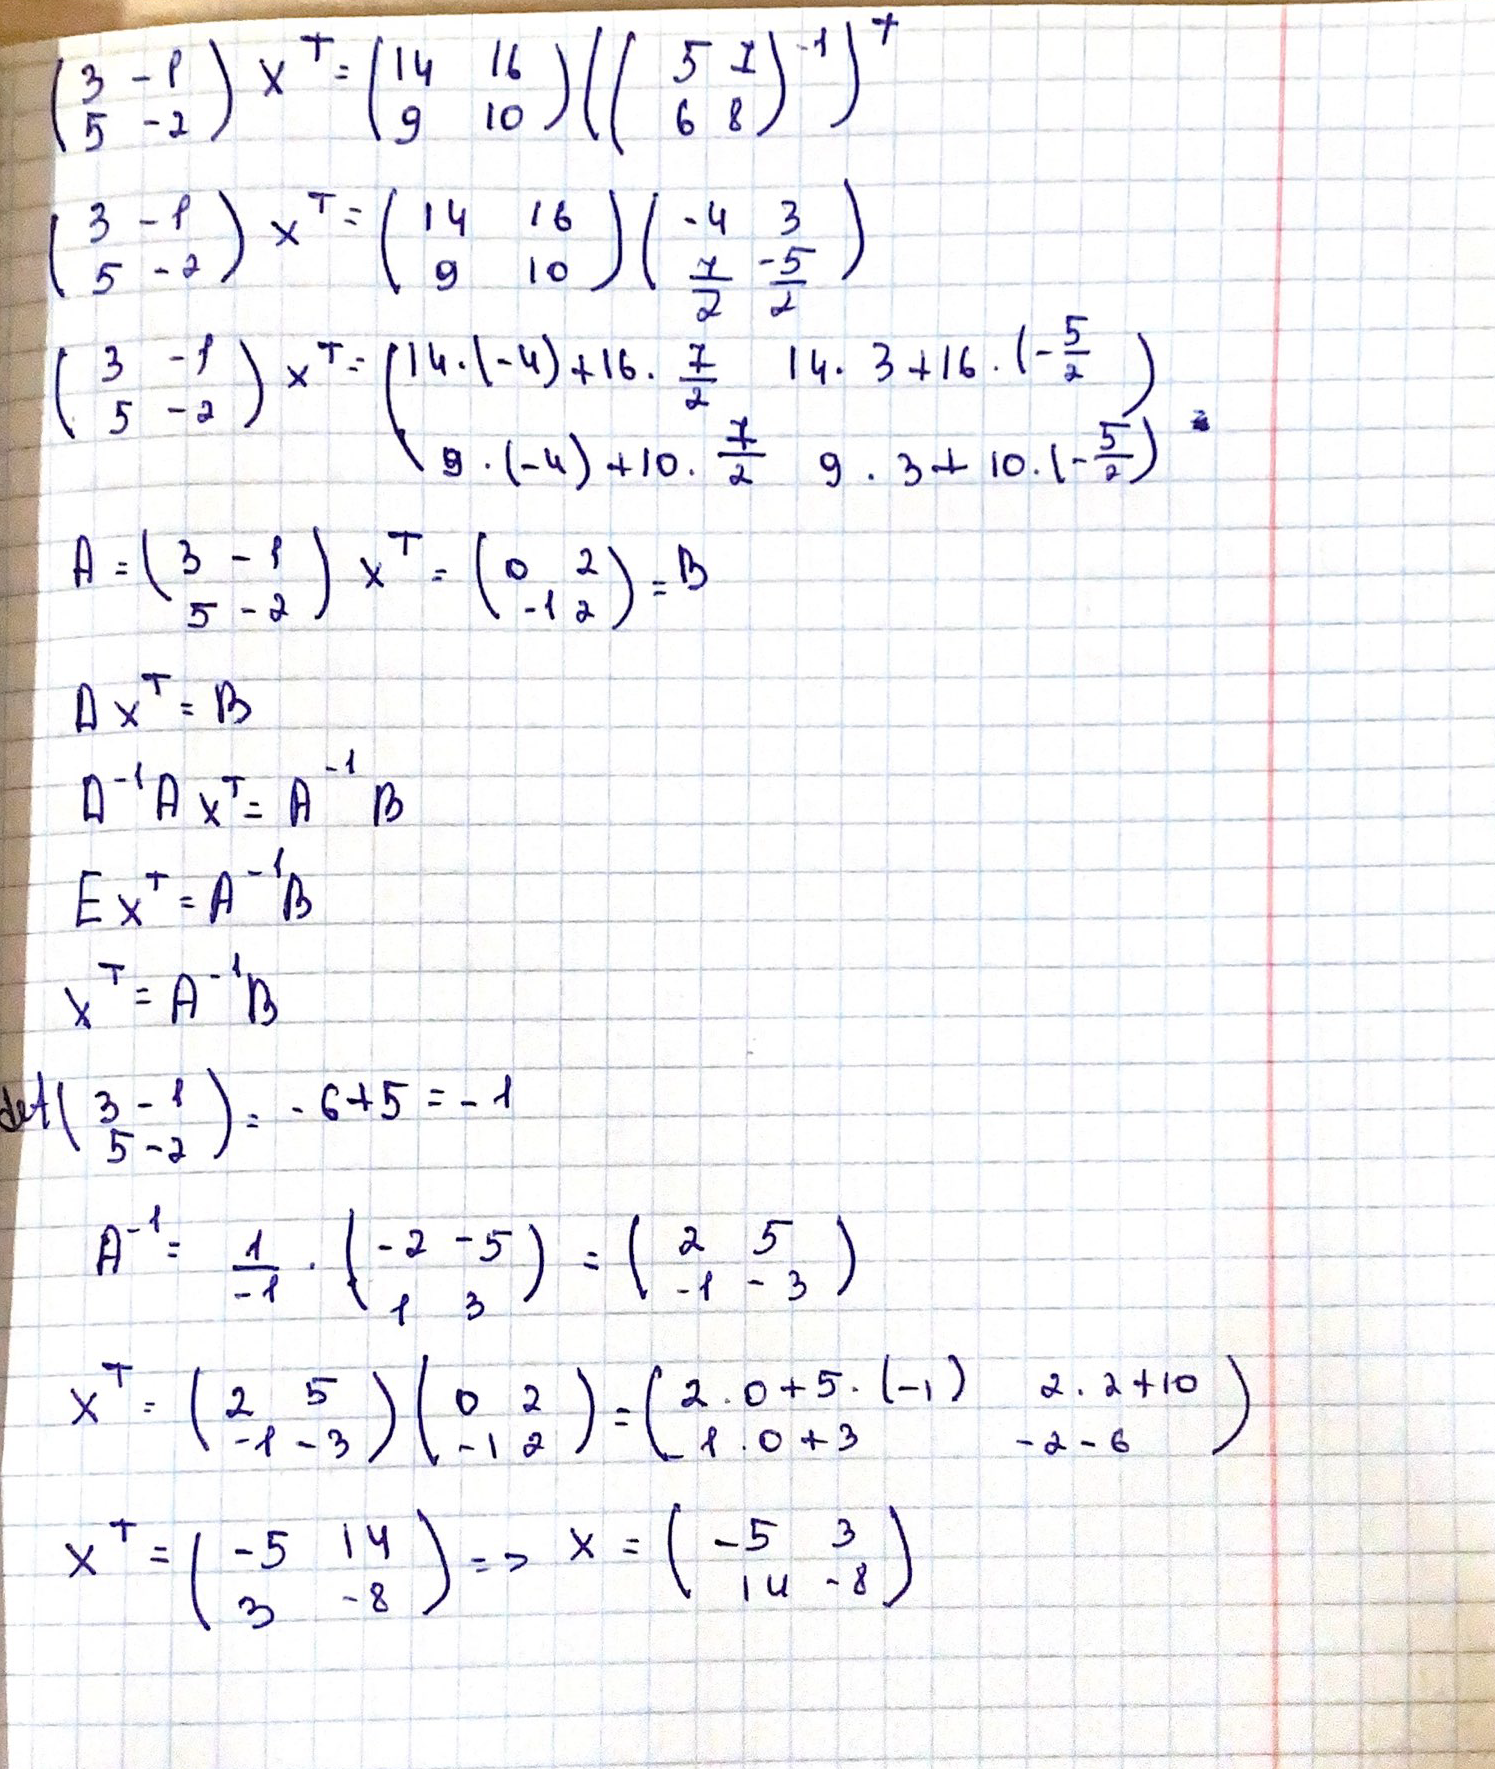 (3 -1; 5 -2) x^T = (14 16; 9 10)((5 7; 6 8)^-1)^T
(3 -1; 5 -2) x^T = (14 16; 9 10)(-4 3; 7/2 -5/2)
(3 -1; 5 -2) x^T = (14·(-4)+16·7/2 14·3+16·(-5/2; 9·(-4)+10·7/2 9·3+10·(-5/2)) =
A = (3 -1; 5 -2) x^T = (0 2; -1 2) = B
A x^T = B
A^-1 A x^T = A^-1 B
E x^T = A^-1 B
x^T = A^-1 B
det(3 -1; 5 -2) = -6+5 = -1
A^-1 = 1/-1 · (-2 -5; 1 3) = (2 5; -1 -3)
x^T = (2 5; -1 -3)(0 2; -1 2) = (2·0+5·(-1) 2·2+10; -1·0+3 -2-6)
x^T = (-5 14; 3 -8) => x = (-5 3; 14 -8)